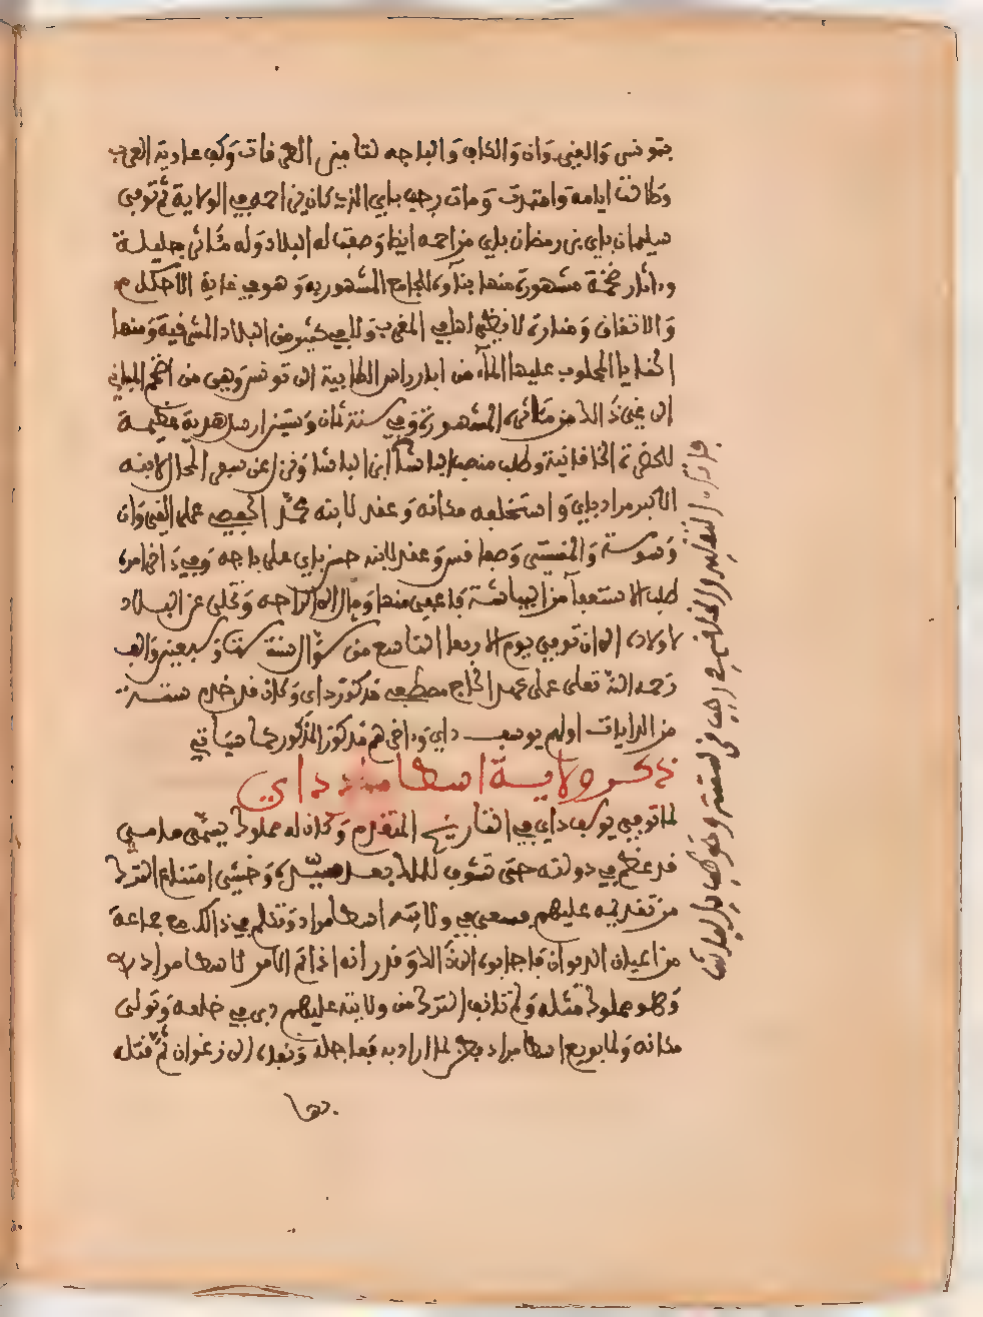 بتونس والقيروان والكاف وباجه لتامين الطرقات وكف عادية العرب
وطالت ايامه وامتدت ومات رجب باي الذي كان من احمه في الولاية ثم توفي
سليمان باي بن رمضان باي مزاحمه ايضا وصفا له البلاد وله مئاثر جليلة
وءاثار ضخمة مشهورة منها بناوه الجامع المشهور به وهو في غاية الاحكام
والاتقان ومنارة لا نظير لها في المغرب ولا في كثير من البلاد المشرقية ومنها
الحنايا المجلوب عليها الماء من ابار راس الطابية الى تونس وهي من اضخم المباني
الى غير ذالك من مئاثره المشهورة وفي سنة ثمان وستين ارسل هدية عظيمة
للحضرة الخاقانية وطلب منصب الباشا ابن الباشا ونزل عن سفر المحال لابنه
الاكبر مراد باي واستخلفه مكانه وعقد لابنه محمد الحفصي على القيروان
وسوسة والمنستير وصفاقس وعقد لابنه حسن باي على باجه وفي ءاخر امره
طلب الاستعفاء من الباشية فاعفي منها ومال الى الراحه وتخلى عن البلاد
لاولاده الى ان توفي يوم الاربعا التاسع من شوال سنة سبع وسبعين والف
رحمه الله تعلى على عهد الحاج مصطفى قدكوز داي وكان قد خدم ستة
من الدايات اولهم يوسف داي وءاخرهم قدكوز المذكور كما سياتي
ذكر ولاية اسطا مراد داي
لما توفي يوسف داي في التاريخ المتقدم وكان له مملوك يسمى مامي
قد عظم في دولته حتى تشوف للملك بعد سيده وخشي امتناع الترك
من تقديمه عليهم فسعى في ولاية اسطا مراد وتكلم في ذالك مع جماعة
من اعيان الديوان فاجابوه الى ذالك وقدر انه اذا تم الامر لاسطا مراد
وهو مملوك مثله ولم تانف الترك من ولايته عليهم دبر في خلعه وتولى
مكانه ولما بويع اسطا مراد فطن لما اراد به فعاجله ونفاه الى زغوان ثم قتله
بها